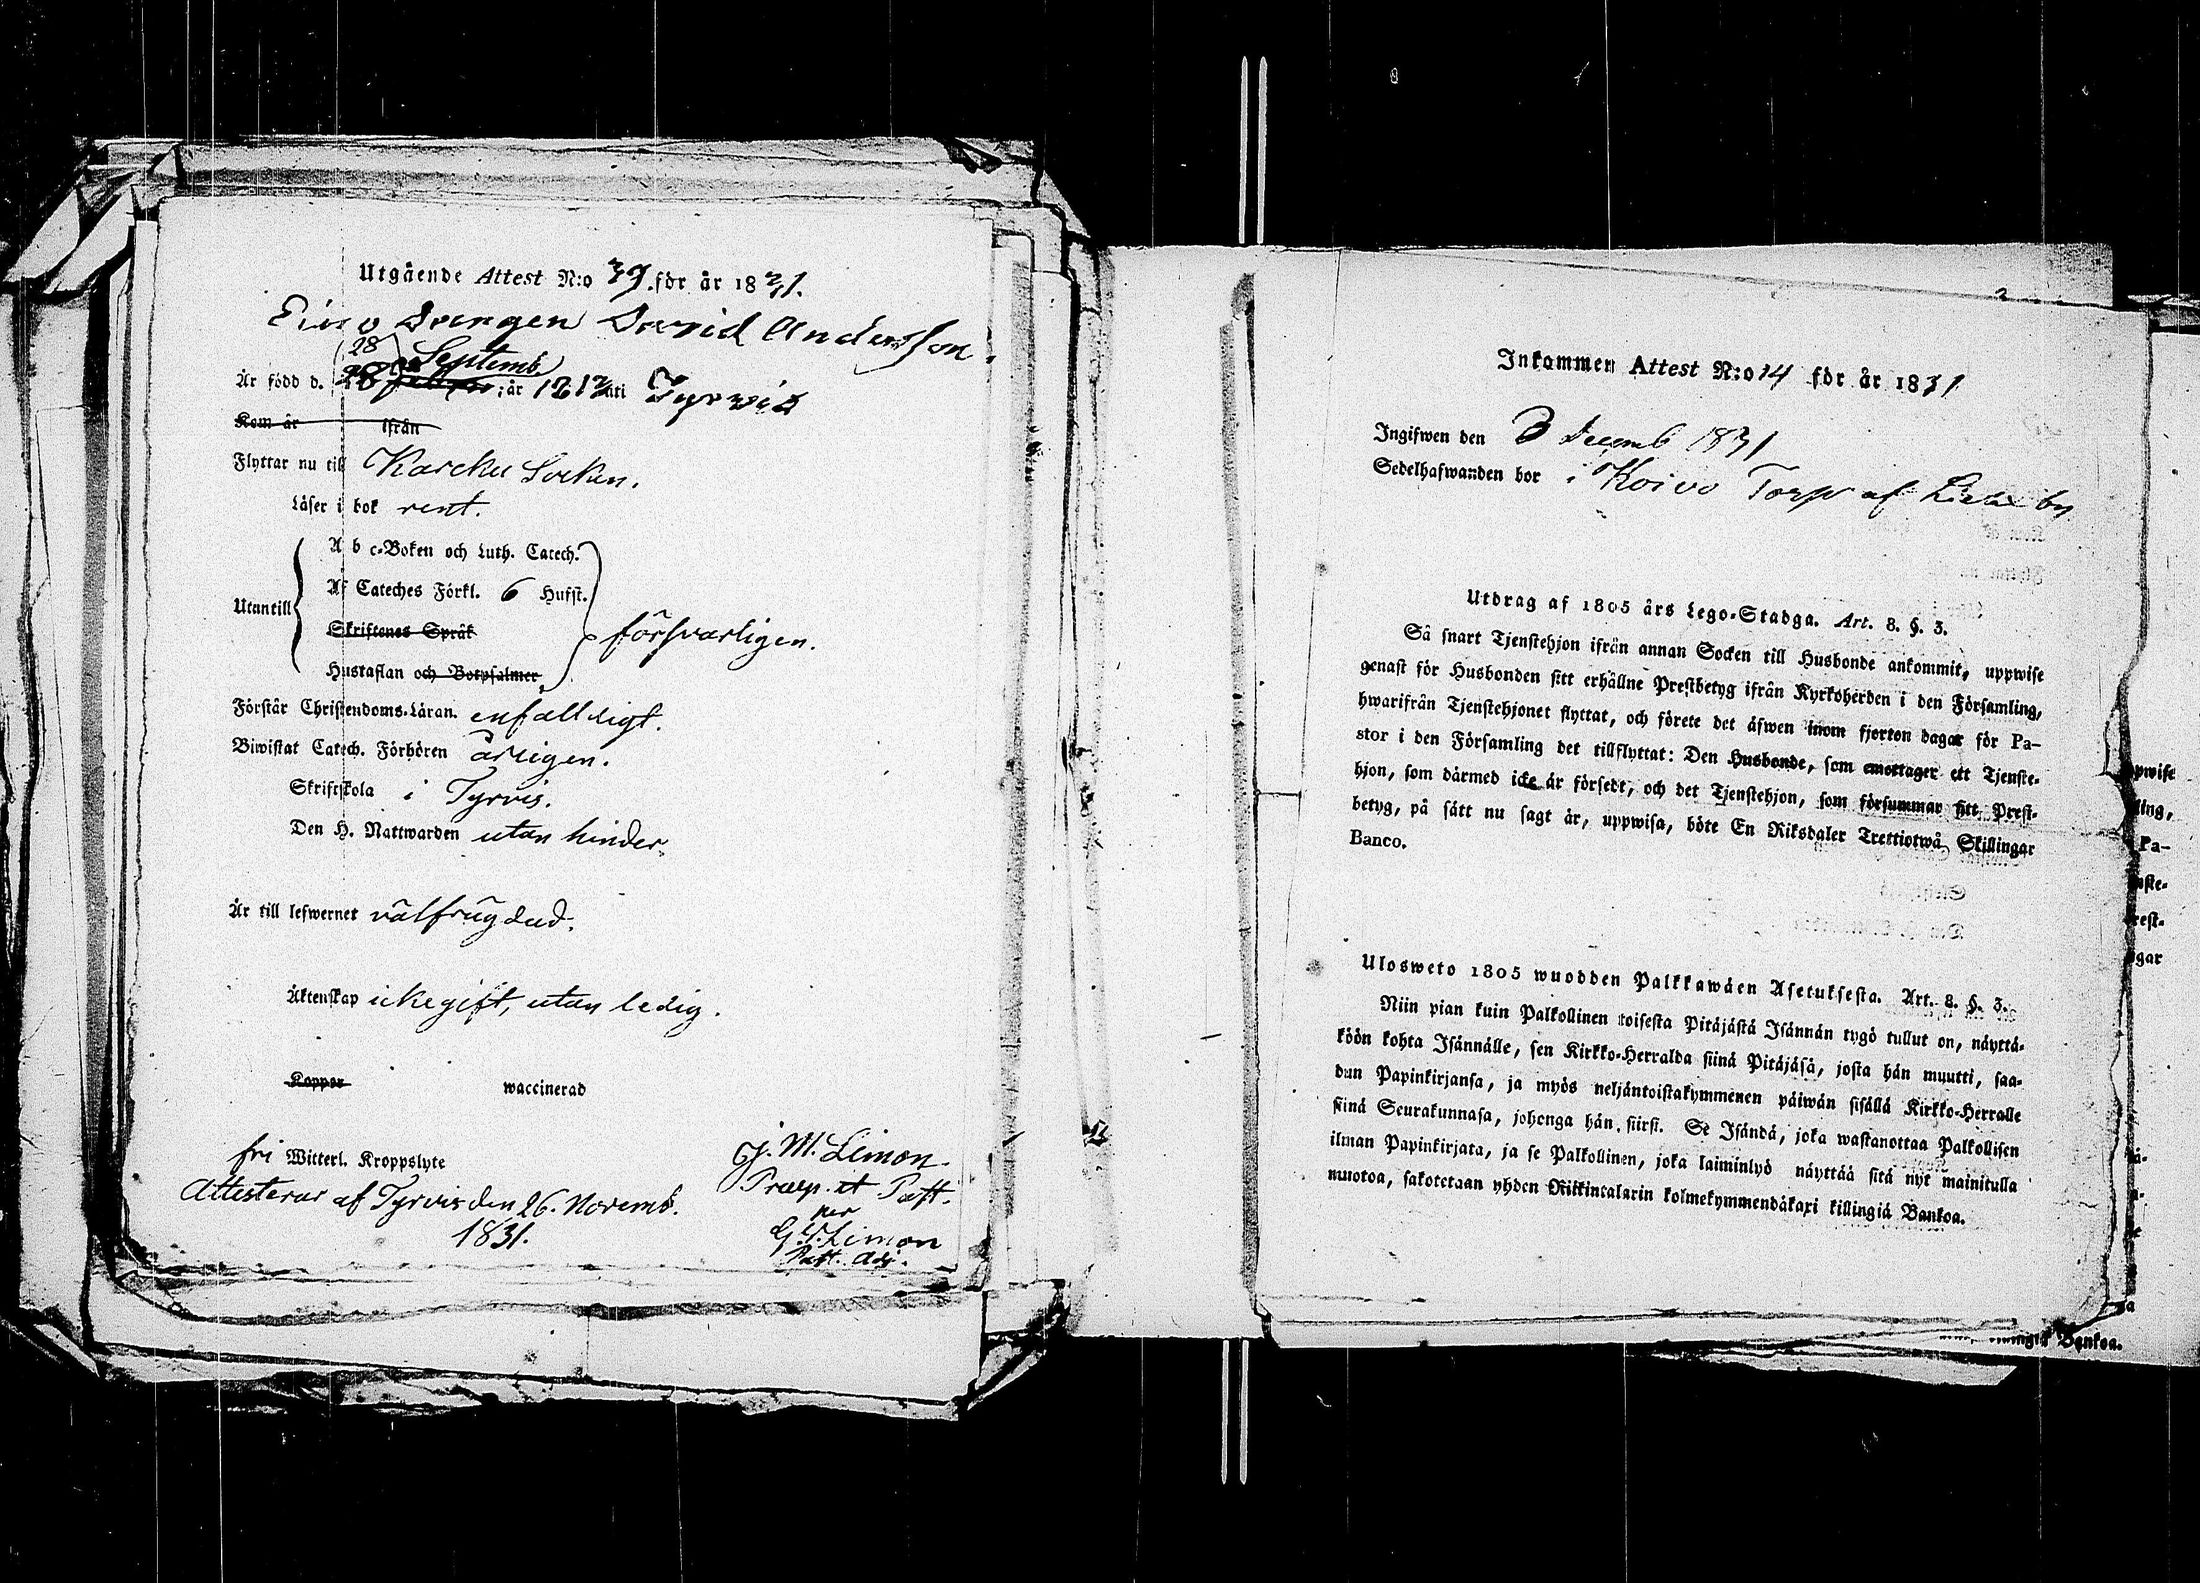 Utgående Attest N:o 39. för år 1831.
Drängen David Andersson.
28 Septemb.
Är född d. 28 ; år 1812 uti Tyrvis
Kom år ifrån
Flyttar nu till Karcku Socken.
Läser i bok rent.
A b c-Boken och Luth. Catech.
Af Cateches Förkl. 6 Hufst.
Utantill
Skriftenes Språk
försvarligen.
Hustaflan och Botpsalmer
Förstår Christendoms-Läran. enfalldigt.
Biwistat Catech. Förhören årligen.
Skriftskola i Tyrvis.
Den H. Nattwarden utan hinder.
Är till lefwernet välfrägdad.
Äktenskap icke gift, utan ledig.
Koppor waccinerad
fri Witterl. Kroppslyte
Attesterar af Tyrvis den 26. Novemb.
1831.
J. M. Limon.
Præp. et Past.
per
G. Limon
Past. Adj.
Inkommen Attest N:o 14 för år 1831
Ingifwen den 3 Decemb 1831
Sedelhafwanden bor i Koivo Torp af by
Utdrag af 1805 års Lego-Stadga. Art. 8. §. 3.
Så snart Tjenstehjon ifrån annan Socken till Husbonde ankommit, uppwise
genast för Husbonden sitt erhållne Prestbetyg ifrån Kyrkoherden i den Församling,
hwarifrån Tjenstehjonet flyttat, och förete det äfwen inom fjorton dagar för Pa-
stor i den Församling det tillflyttat: Den Husbonde, som emottager ett Tjenste-
hjon, som därmed icke är försedt, och det Tjenstehjon, som försummar sitt Prest-
betyg, på sätt nu sagt är, uppwisa, böte En Riksdaler Trettiotwå Skillingar
Banco.
Ulosweto 1805 wuodden Palkkawäen Asetuksesta. Art. 8. §. 3.
Niin pian kuin Palkollinen toisesta Pitäjästä Isännän tygö tullut on, näyttä-
köön kohta Isännälle, sen Kirkko-Herralda siinä Pitäjäsä, josta hän muutti, saa-
dun Papinkirjansa, ja myös neljäntoistakymmenen päiwän sisällä Kirkko-Herralle
siinä Seurakunnasa, johonga hän siirsi. Se Isändä, joka wastanottaa Palkollisen
ilman Papinkirjata, ja se Palkollinen, joka laiminlyö näyttää sitä nyt mainitulla
muotoa, sakotetaan yhden Riikintalarin kolmekymmendäkaxi killingiä Bankoa.
pwise
ling,
Pa-
nste-
rest-
gar
Bankoa.